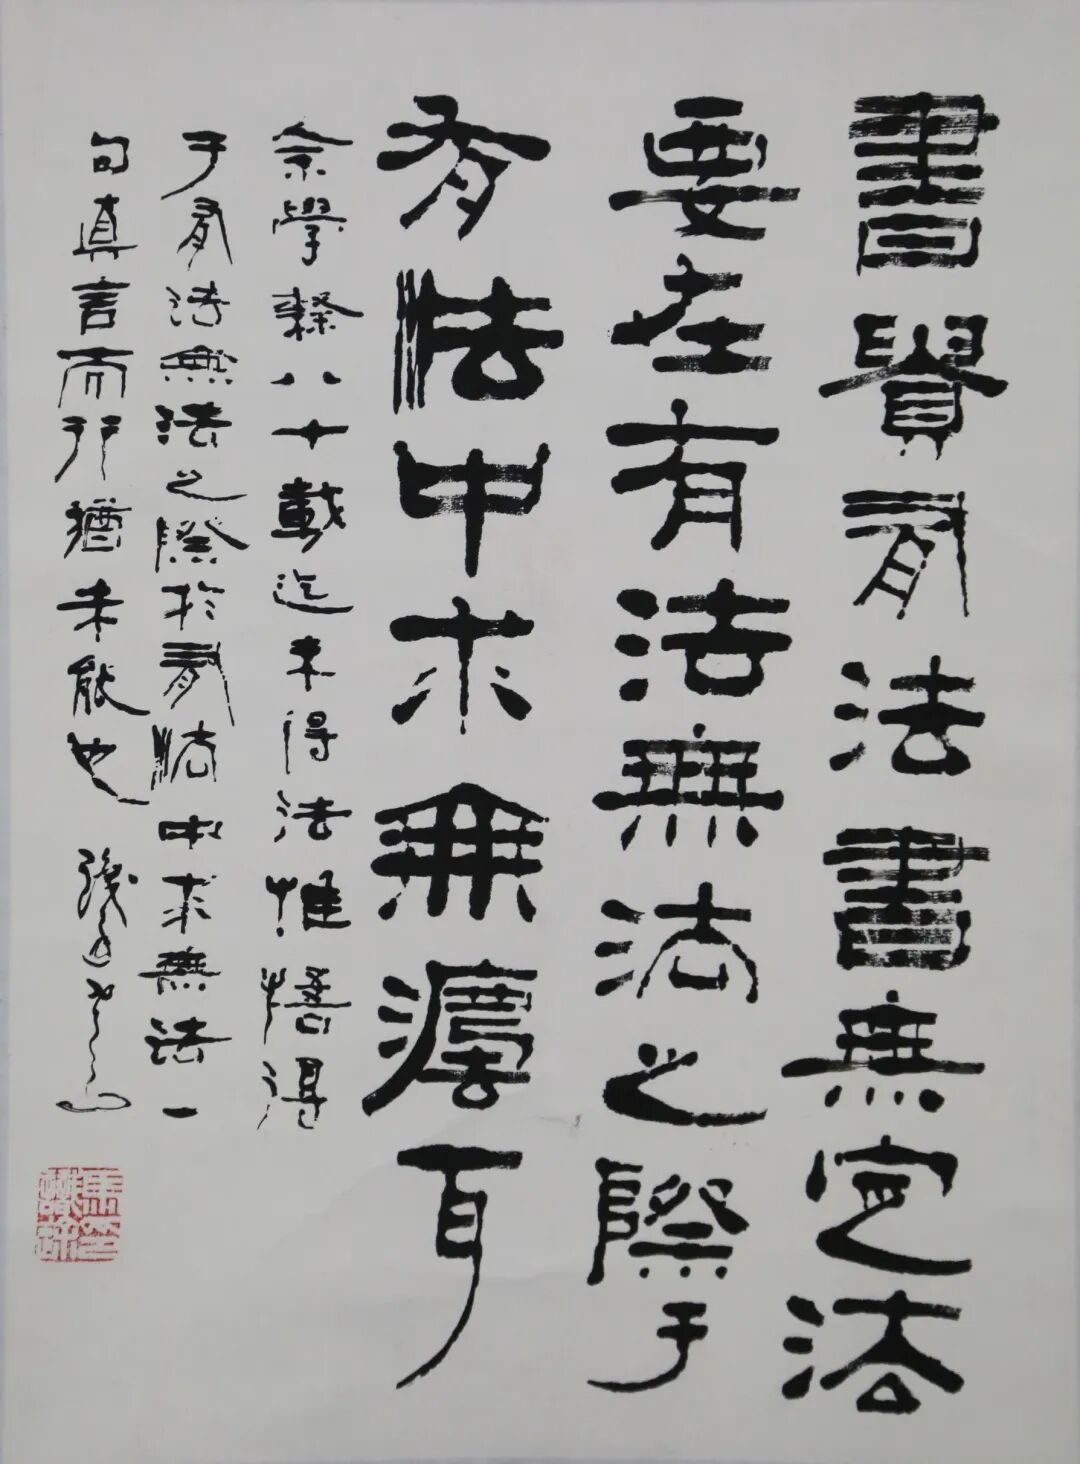 書貴有法書無定法
要在有法無法之際于
有法中求無灋耳
余學隸八十載迄未得法惟悟得
于有法無法之際於有法中求無法一
句真言而行猶未能也